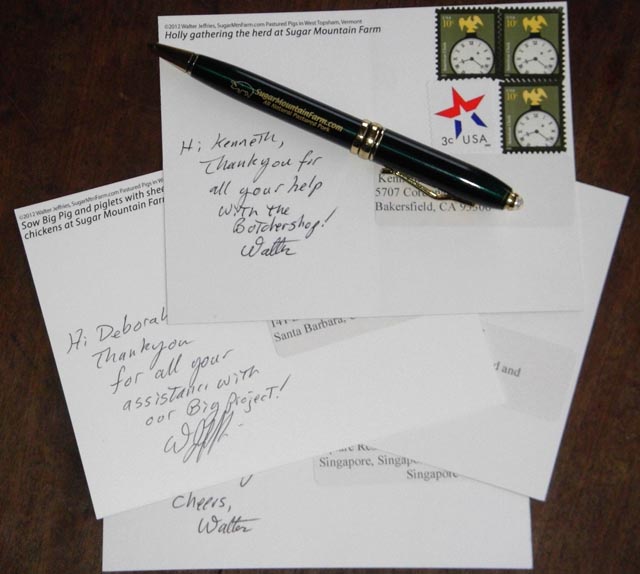 ©2012 Walter Jeffries, SugarMtnFarm.com Pastured Pigs in West Topsham, Vermont
Holly gathering the herd at Sugar Mountain Farm
USA
10c
USA
10c
USA
10c
3c USA
SugarMountainFarm.com
All Natural Pastured Pork
Hi Kenneth,
Thankyou for
all your help
with the
Botchershop!
Walter
5707
Bakersfield, CA
©2012 Walter Jeffries, SugarMtnFarm.com Pastured Pigs in
Sow Big Pig and piglets with
chickens at Sugar Mountain Farm
Hi Deborah
Thankyou
for all your
assistance with
our Big Project!
Santa Barbara,
and
Singapore,
Singapore
Cheers,
Walter